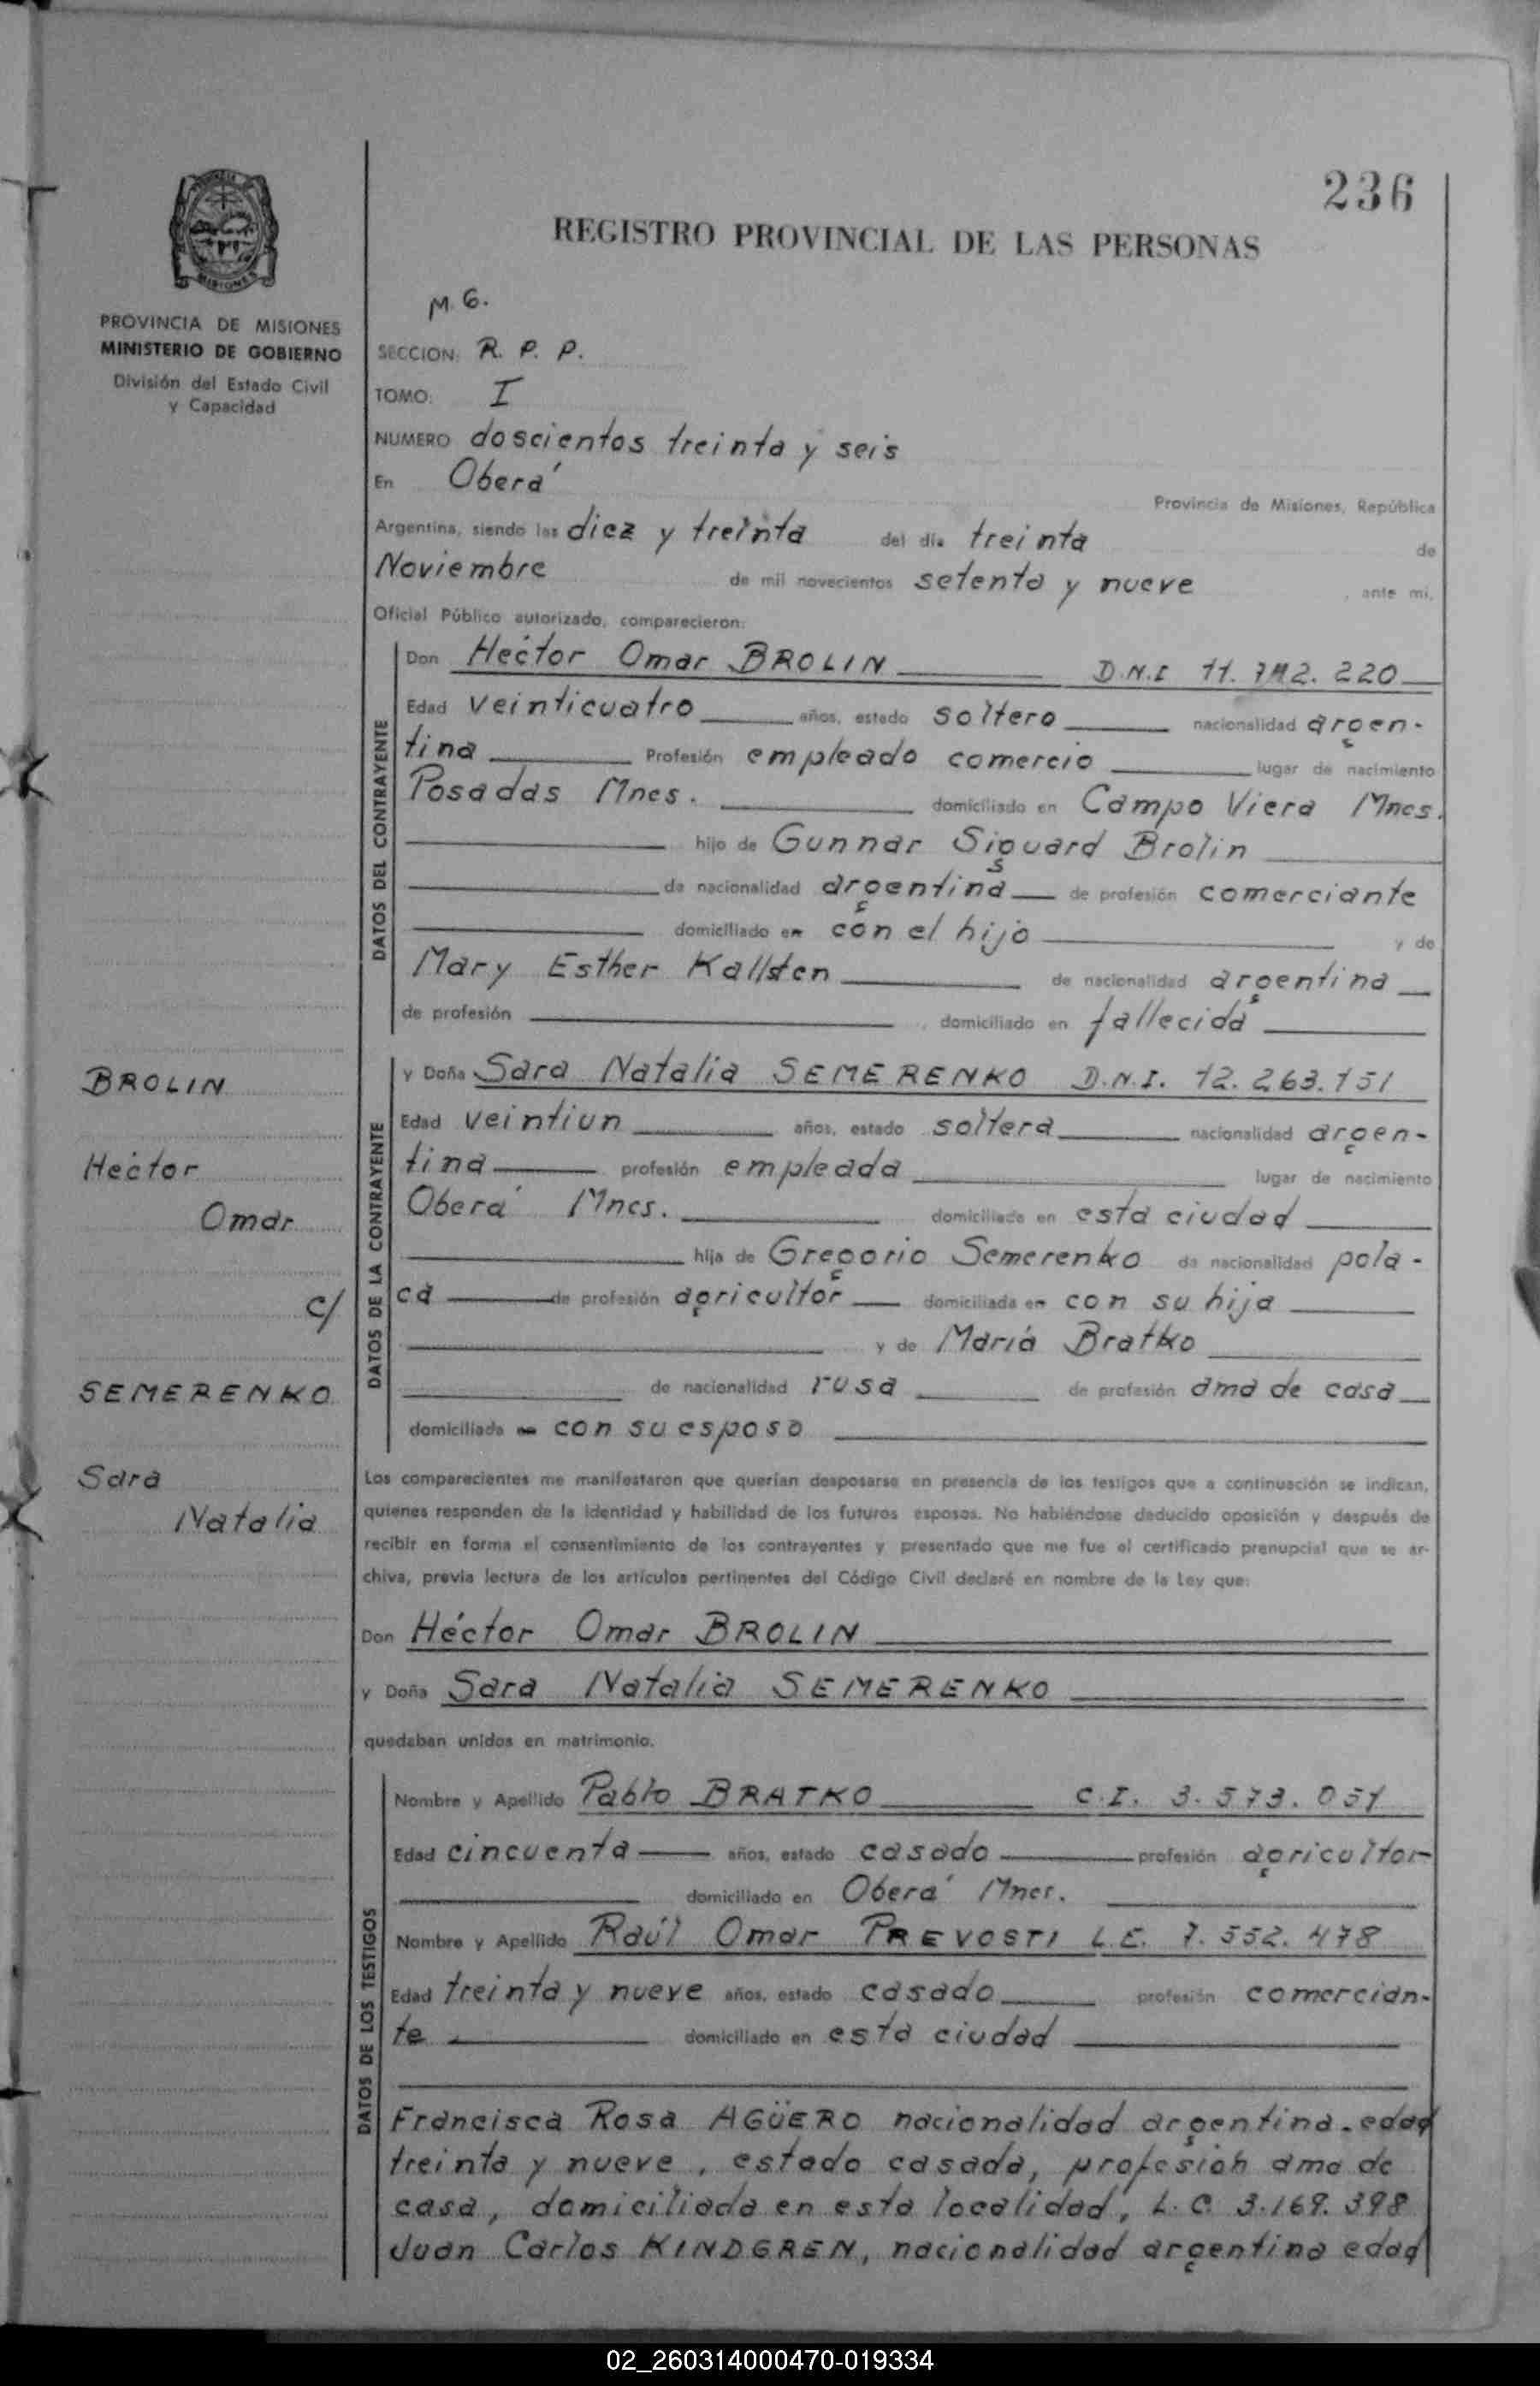 236
REGISTRO PROVINCIAL DE LAS PERSONAS
MISIONES
PROVINCIA DE MISIONES
MINISTERIO DE GOBIERNO
División del Estado Civil
y Capacidad
M. G.
SECCION: R. P. P.
TOMO: I
NUMERO doscientos treinta y seis
En Oberá
Provincia de Misiones, República
Argentina, siendo las diez y treinta del día treinta de
Noviembre de mil novecientos setenta y nueve, ante mí,
Oficial Público autorizado, comparecieron:
DATOS DEL CONTRAYENTE
Don Héctor Omar BROLIN D.N.I 11.742.220
Edad veinticuatro años, estado soltero nacionalidad argen-
tina Profesión empleado comercio lugar de nacimiento
Posadas Mnes. domiciliado en Campo Viera Mnes.
hijo de Gunnar Siguard Brolin
de nacionalidad argentina de profesión comerciante
domiciliado en con el hijo y de
Mary Esther Kallsten de nacionalidad argentina
de profesión , domiciliado en fallecida
DATOS DE LA CONTRAYENTE
y Doña Sara Natalia SEMERENKO D.N.I. 12.263.151
Edad veintiun años, estado soltera nacionalidad argen-
tina profesión empleada lugar de nacimiento
Oberá Mnes. domiciliada en esta ciudad
hija de Gregorio Semerenko de nacionalidad pola-
ca de profesión agricultor domiciliada en con su hija
y de María Bratko
de nacionalidad rusa de profesión ama de casa
domiciliada en con su esposo
BROLIN
Héctor
Omar
c/
SEMERENKO
Sara
Natalia
Los comparecientes me manifestaron que querían desposarse en presencia de los testigos que a continuación se indican,
quienes responden de la identidad y habilidad de los futuros esposos. No habiéndose deducido oposición y después de
recibir en forma el consentimiento de los contrayentes y presentado que me fue el certificado prenupcial que se ar-
chiva, previa lectura de los artículos pertinentes del Código Civil declaré en nombre de la Ley que:
Don Héctor Omar BROLIN
y Doña Sara Natalia SEMERENKO
quedaban unidos en matrimonio.
DATOS DE LOS TESTIGOS
Nombre y Apellido Pablo BRATKO C.I. 3.573.051
Edad cincuenta años, estado casado profesión agricultor
domiciliado en Oberá Mnes.
Nombre y Apellido Raúl Omar PREVOSTI L.E. 7.552.478
Edad treinta y nueve años, estado casado profesión comercian-
te domiciliado en esta ciudad
Francisca Rosa AGÜERO nacionalidad argentina. edad
treinta y nueve, estado casada, profesión ama de
casa, domiciliada en esta localidad, L.C. 3.169.398
Juan Carlos KINDGREN, nacionalidad argentino edad
02_260314000470-019334